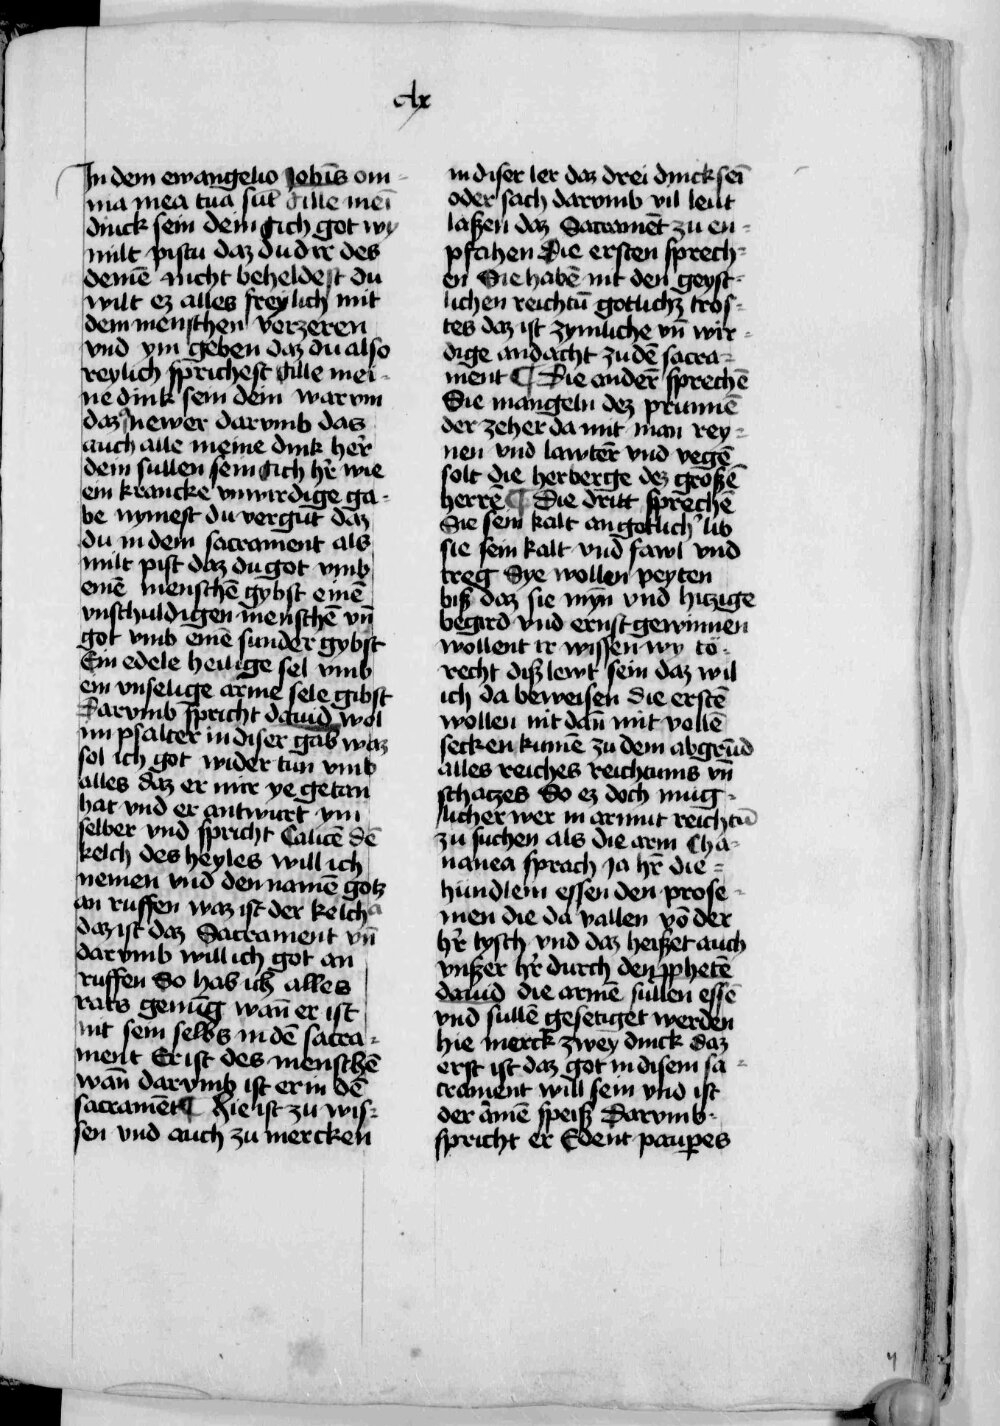 clx
In dem ewangelio Johīs om-
nia mea tua sūt Alle meī
dinck sein dein Sich got wy
milt pistu daz du dir des
deinē nicht beheldest du
wilt ez alles freylich mit
dem menschen verzeren
vnd ym geben daz du also
reylich sprichest Alle mei-
ne dink sein dein warvm
daz newer darvmb das
auch alle meine dink her̄
dein sullen sein Sich hr̄ wie
ein krancke vnwirdige ga-
be nymest du vergut daz
du in dem sacrament als
milt pist daz du got vmb
einē menschē gybst einē
vnschuldigen menschē vn̄
got vmb einē sunder gybst
Ein edele heilige sel vmb
ein vnselige arme sele gibst
Darvmb spricht dauid wol
im psalter in diser gab waz
sol ich got wider tun vmb
alles daz er mir ye getan
hat vnd er antwurt ym
selber vnd spricht Calicē dē
kelch des heyles will ich
nemen vnd den namē gotz
an ruffen waz ist der kelch
daz ist daz Sacrament vn̄
darvmb will ich got an
ruffen So hab ich alles
rats genūg wan̄ er ist
nit sein selbs in dē sacra-
ment Er ist des menschē
wan̄ darvmb ist er in dē
sacramēt ¶ Hie ist zu wis-
sen vnd auch zu mercken
in diser ler daz drei dinck seī
oder sach darvmb vil leut
laßen daz Sacramēt zu en-
pfahen Die ersten sprech-
en Sie habē nit den geyst-
lichen reichtū gotlichz tros-
tes daz ist zymliche vn̄ wir-
dige andacht zu dē sacra-
ment ¶ Die ander̄ sprechē
Sie mangeln dez prunnē
der zeher da mit man rey-
nen vnd lawter̄ vnd vegē
solt die herberge dez großē
herrē ¶ Die dritt sprechē
Sie sein kalt an gotlich' lib
sie sein kalt vnd fawl vnd
treg Sye wollen peyten
biß daz sie myn̄ vnd hitzige
begird vnd ernst gewinnen
wollent ir wissen wy to-
recht diß lewt sein daz wil
ich da beweisen die erstē
wollen nit dan̄ mit vollē
secken kumē zu dem abgrūd
alles reiches reichtums vn̄
schatzes So ez doch mug-
licher wer in armut reichtū
zu suchen als die arm Cha-
nanea sprach Ja hr̄ die-
hundlein essen den prose-
men die da vallen vō der
hr̄ tysch vnd daz heißet auch
vnßer hr̄ durch den ꝓphetē
dauid die armē sullen essē
vnd sullē gesetiget werden
hie merck zwey dinck daz
erst ist daz got in disem sa-
crament will sein vnd ist
der armē speiß Darvmb-
spricht er Edent pauꝑes